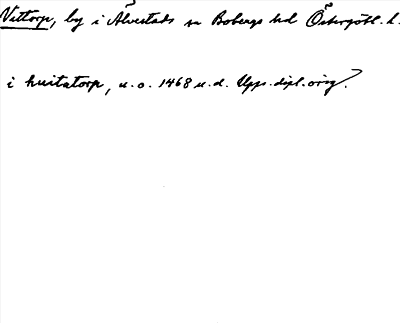 Vittorp, by i Älvestads sn Bobergs hd Östergötl. l.
i huitatorp, u.o. 1468 u.d. Upps.dipl.orig.